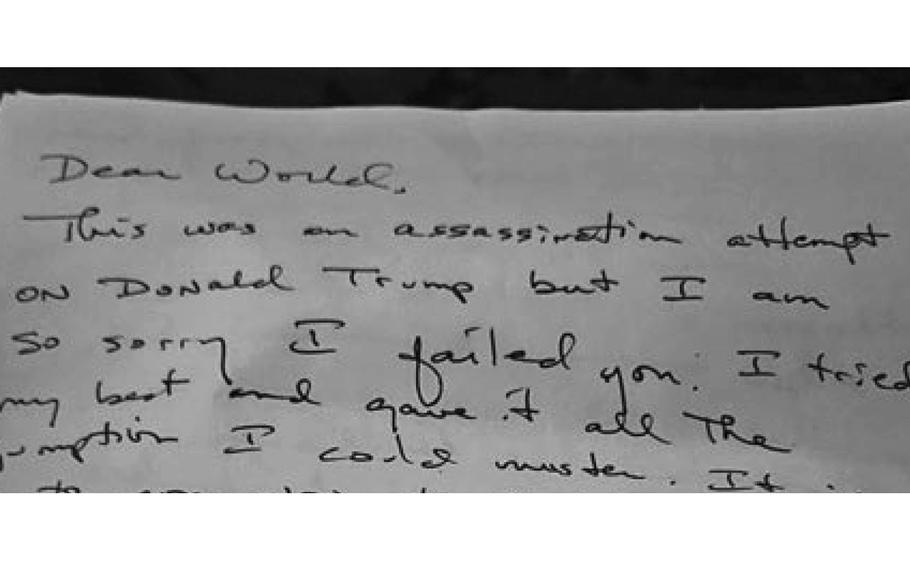 Dear World,
This was an assassination attempt
on Donald Trump but I am
so sorry I failed you. I tried
my best and gave it all the
gumption I could muster. It